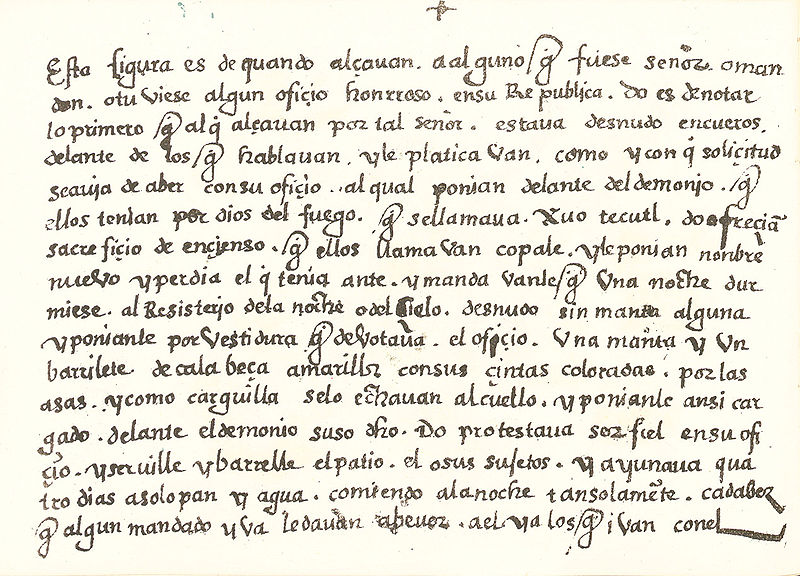 Esta figura es de quando alçauan. a alguno q̃ fuese señor. o man
don. o tu viese algun ofiçio honrroso. en su Republica. Do es denotar
lo primero q̃ al q̃ alçauan por tal señor. estaua desnudo en cueros.
delante de los q̃ hablauan, y le platica van, como y con q̃ soliçitud
se auja de aber con su ofiçio. al qual ponian delante del demonjo. q̃
ellos tenian por dios del fuego. q̃ se llamaua. Xuo tecutl. do ofreciã
sacre ficio de ençienso. q̃ ellos llama van copale. y le ponian nonbre
nuevo y perdia el q̃ tenia ante. y manda vanle q̃ Una noche dur
miese. al Resisterjo dela noche o del Cielo. desnudo sin manta alguna
y poniante por vestidura q̃ devotaũa. el ofiçio. Una manta y Un
barrilete de cala beça amarillo consus çintas coloradas. por las
asas. y como carguilla selo echauan al cuello. y ponianle ansi car
gado. delante el demonio suso dho. Do protestaua ser fiel en su ofi
çio. y seruille y barrelle el patio. el o sus sujetos. y ayunaua qua
tro dias a solo pan y agua. comiendo ala noche tan solamẽte. cada bez
q̃ algun mandado yva le dauan abever. a el y a los q̃ ivan con el